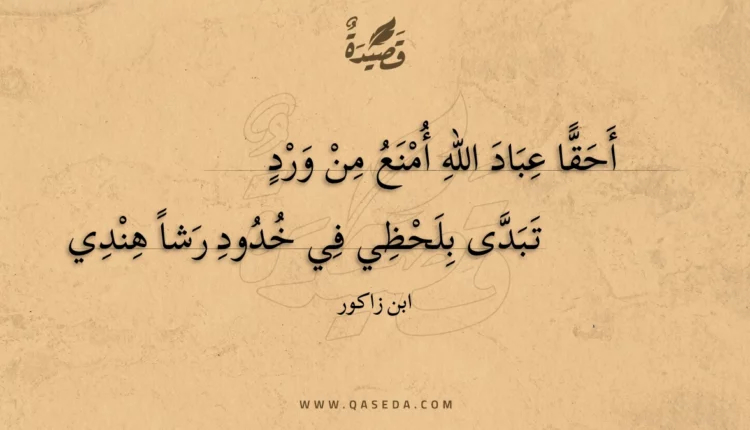 قَصِيدَةٌ
أَحَقًّا عِبَادَ اللهِ أُمْنَعُ مِنْ وَرْدٍ
تَبَدَّى بِلَحْظِي فِي خُدُودِ رَشاً هِنْدِي
ابن زاكور
WWW.QASEDA.COM